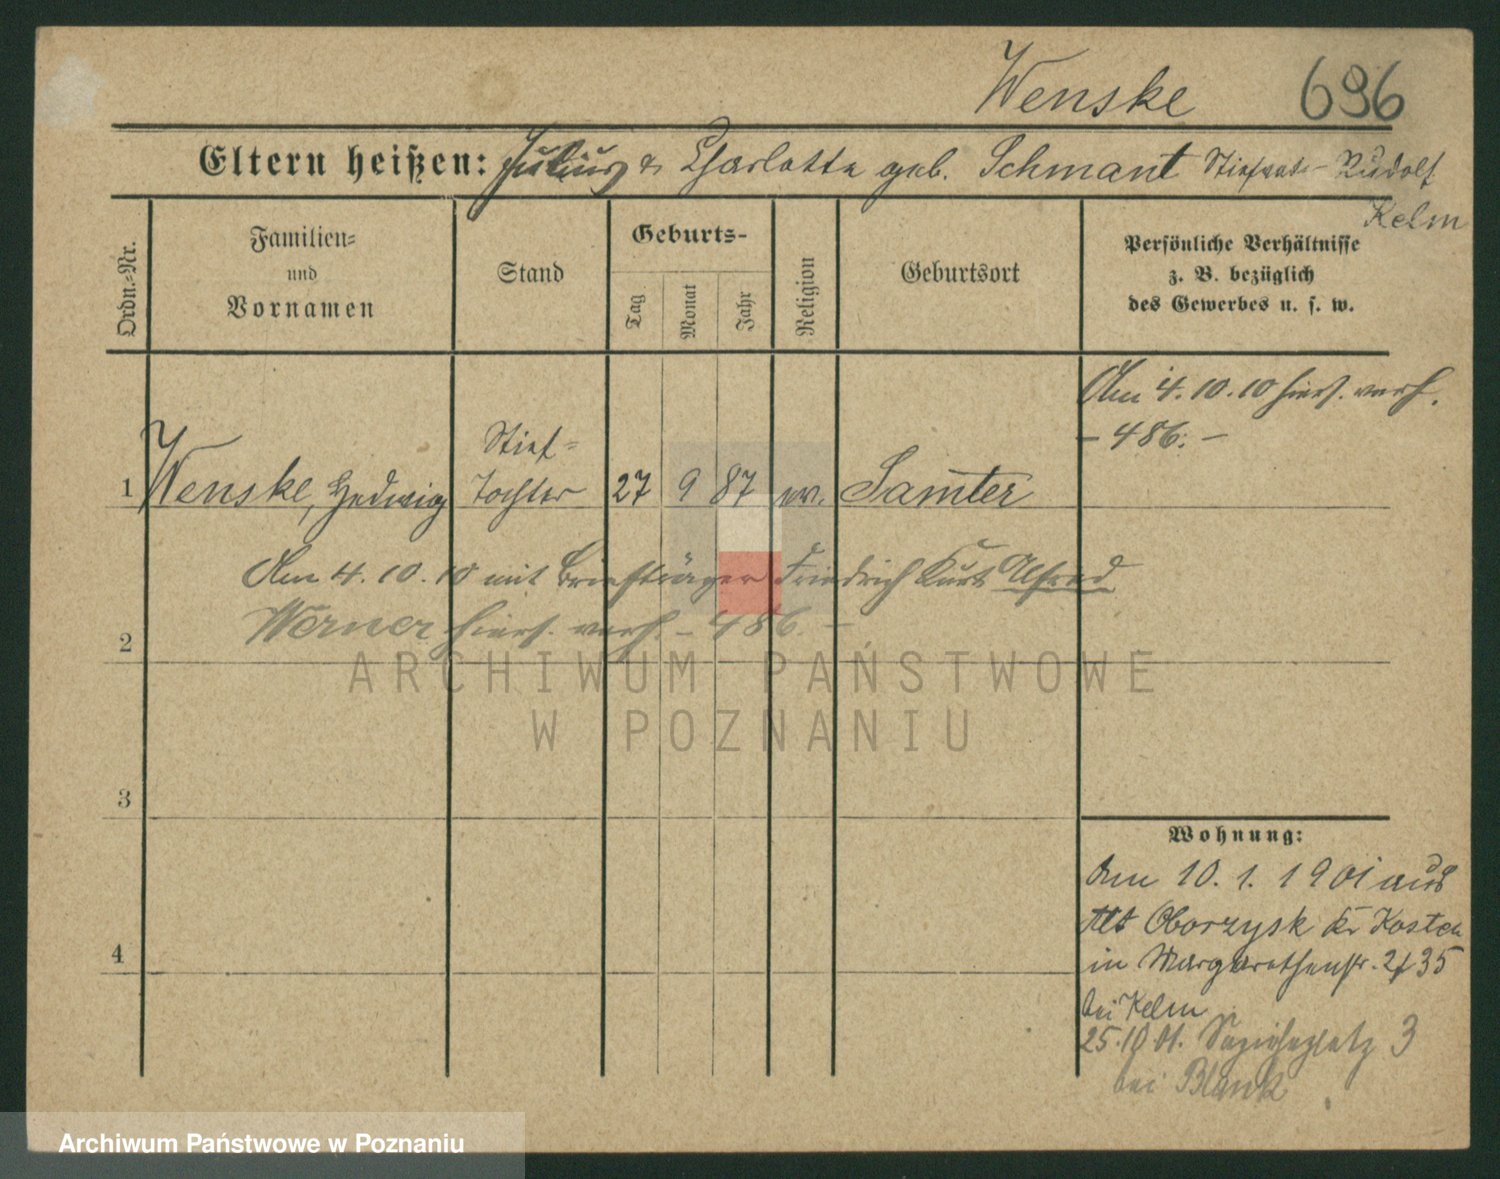 Wenske 696
Eltern heißen: Julius & Charlotte geb. Schmant Stiefvat. Rudolf
Kelm
Ordn.-Nr.
Familien-
und
Vornamen
Stand
Geburts-
Tag
Monat
Jahr
Religion
Geburtsort
Persönliche Verhältnisse
z. B. bezüglich
des Gewerbes u. s. w.
Am 4. 10. 10 hiers. verh.
- 486. -
Stief-
1 Wenske, Hedwig Tochter 27 9 87 ev. Samter
Am 4. 10. 10 mit Briefträger Friedrich Kurt Alfred
Werner hiers. verh. - 486. -
2
ARCHIWUM PAŃSTWOWE
W POZNANIU
3
Wohnung:
Am 10. 1. 1901 aus
Alt Oborzysk Kr Kosten
4
in Margarethenstr. 35
bei Kelm
25.10.01. 3
bei Blank
Archiwum Państwowe w Poznaniu